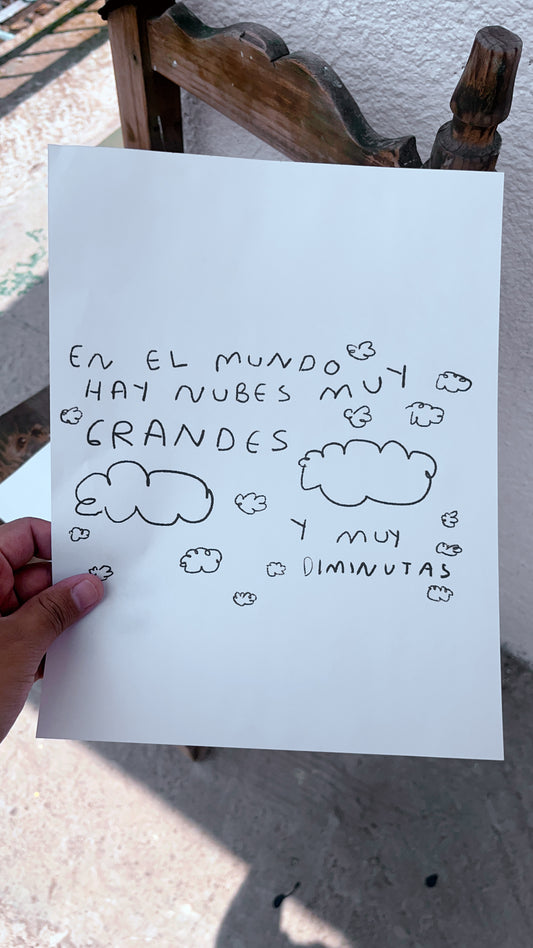 EN EL MUNDO
HAY NUBES MUY
GRANDES
Y MUY
DIMINUTAS